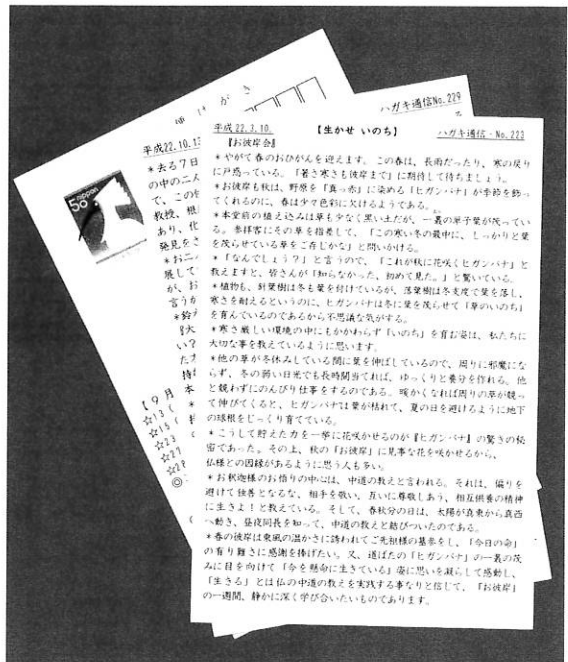 郵便はがき
nippon
50
ハガキ通信No.229
平成22.10.13
*去る7日
の中の二人
で、この
教授、根
あり、化
発見をさ
*お二
展して
が、お
言うか
*鈴
『大
い?
た
持
本
【9月
☆13(
☆15(
☆23
☆27
☆28
◎
平成22.3.10. 【生かせ いのち】 ハガキ通信・No.223
『お彼岸会』
*やがて春のおひがんを迎えます。この春は、長雨だったり、寒の戻り
に戸惑っている。「暑さ寒さも彼岸まで」に期待して待ちましょう。
*お彼岸も秋は、野原を「真っ赤」に染める「ヒガンバナ」が季節を飾っ
てくれるのに、春は少々色彩に欠けるようである。
*本堂前の植え込みは草も少なく黒い土だが、一叢の単子葉が茂ってい
る。参拝客にその草を指差して、「この寒い冬の最中に、しっかりと葉
を茂らせている草をご存じかな」と問いかける。
*「なんでしょう?」と言うので、「これが秋に花咲くヒガンバナ」と
教えますと、皆さんが「知らなかった、初めて見た。」と驚いている。
*植物も、針葉樹は冬も葉を付けているが、落葉樹は冬支度で葉を落し、
寒さを耐えるというのに、ヒガンバナは冬に葉を茂らせて「草のいのち」
を育んでいるのであるから不思議な気がする。
*寒さ厳しい環境の中にもかかわらず「いのち」を育お姿は、私たちに
大切な事を教えているように思います。
*他の草が冬休みしている間に葉を伸ばしているので、周りに邪魔にな
らず、冬の弱い日光でも長時間当てれば、ゆっくりと養分を作れる。他
と競わずにのんびり仕事をするのである。暖かくなれば周りの草が競っ
て伸びてくると、ヒガンバナは葉が枯れて、夏の日を避けるように地下
の球根をじっくり育てている。
*こうして貯えた力を一挙に花咲かせるのが『ヒガンバナ』の驚きの秘
密であった。その上、秋の「お彼岸」に見事な花を咲かせるから、
仏様との因縁があるように思う人も多い。
*お釈迦様のお悟りの中心は、中道の教えと言われる。それは、偏りを
避けて独善となるな、相手を敬い、互いに尊敬しあう、相互供養の精神
に生きよ!と教えている。そして、春秋分の日は、太陽が真東から真西
へ動き、昼夜同長を知って、中道の教えと結びついたのである。
*春の彼岸は東風の温かさに誘われてご先祖様の墓参をし、「今日の命」
の有り難さに感謝を捧げたい。又、道ばたの「ヒガンバナ」の一叢の茂
みに目を向けて「今を懸命に生きている」姿に思いを凝らして感動し、
「生きる」とは仏の中道の教えを実践する事なりと信じて、「お彼岸」
の一週間、静かに深く学び合いたいものであります。